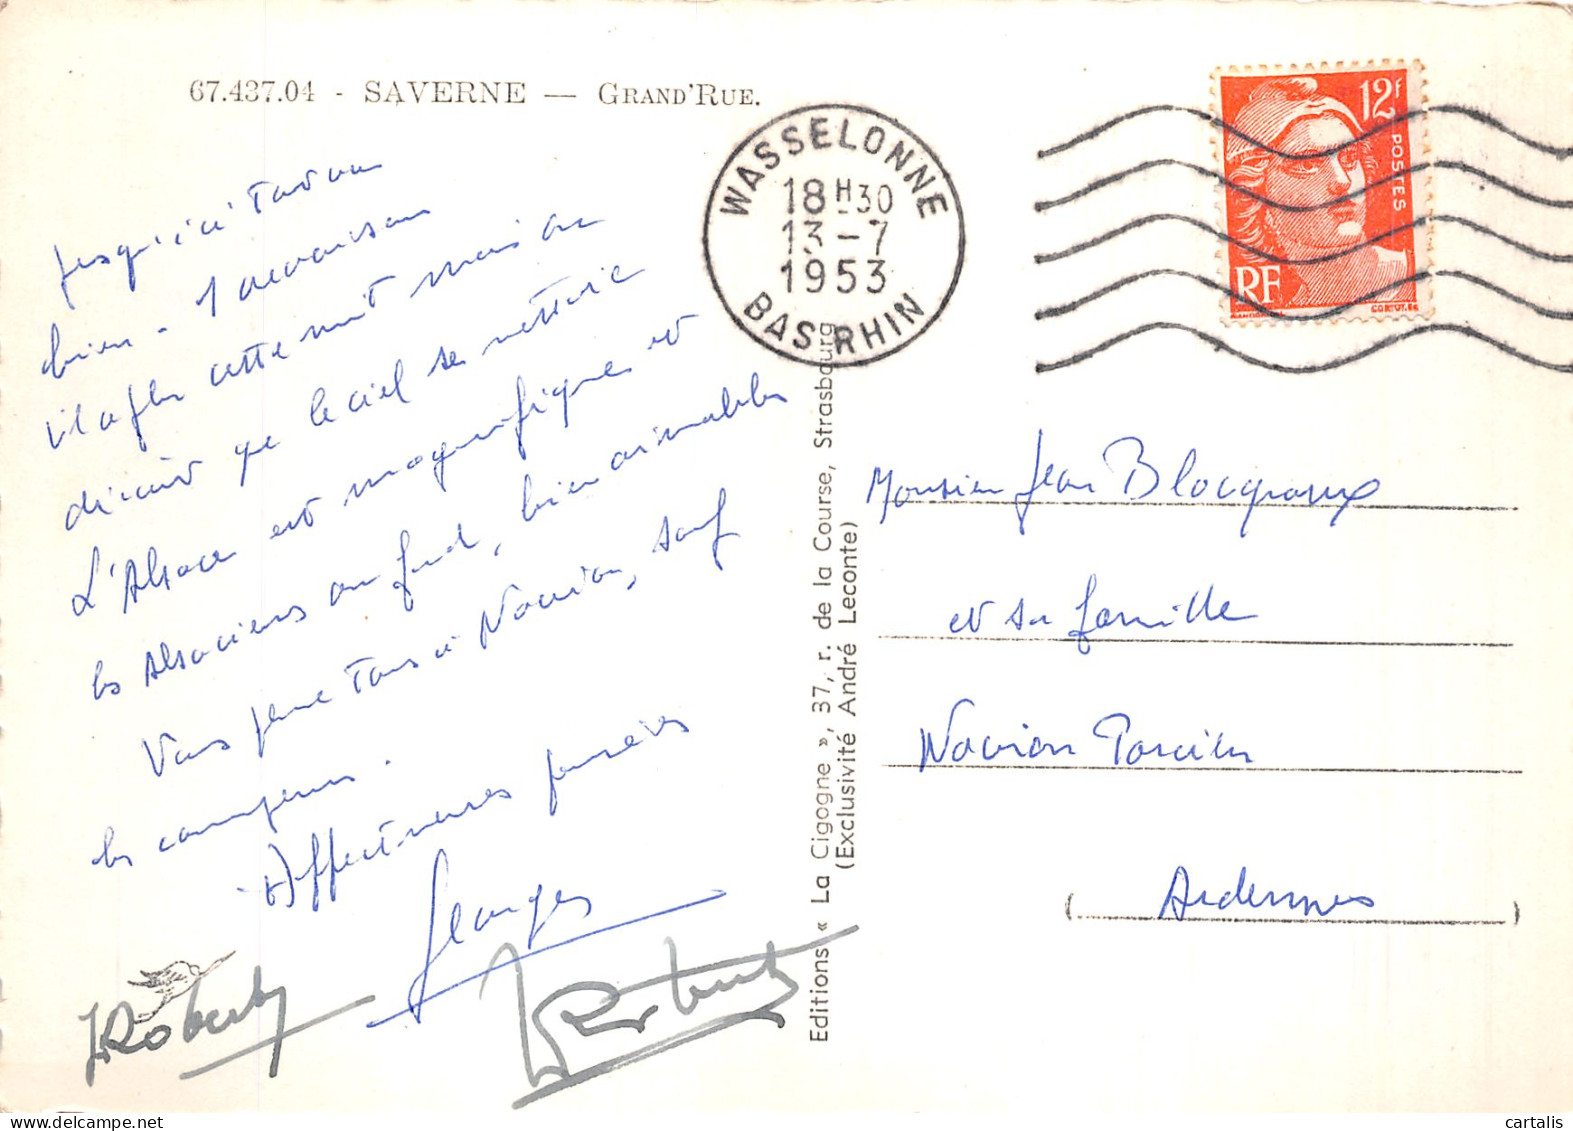 67.437.04 - SAVERNE — GRAND'RUE.
Jusqu'ici tout va
bien - 
il a plu cette nuit mais on
dirait que le ciel se nettoie
L'Alsace est magnifique et
les Alsaciens au fond, bien aimables
Vous pense tous à Novion, sauf
les
Affectueuses pensées
Georges
Roberty
WASSELONNE
18H30
13-7
1953
BAS RHIN
12F
POSTES
RF
Editions « La Cigogne », 37, r. de la Course, Strasbourg
(Exclusivité André Leconte)
Monsieur Jean Blocquaux
et sa famille
Novion Porcien
(Ardennes)
cartalis